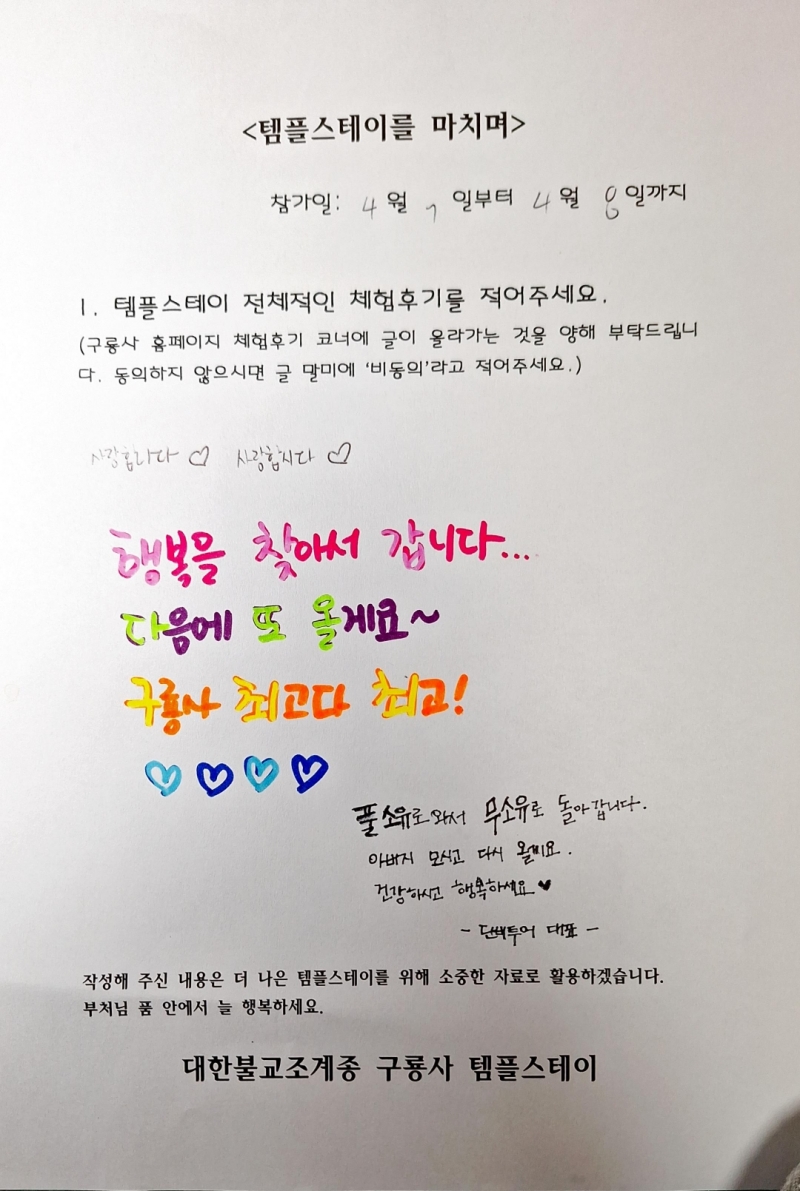 <템플스테이를 마치며>
참가일: 4월 7일부터 4월 8일까지
1. 템플스테이 전체적인 체험후기를 적어주세요.
(구룡사 홈페이지 체험후기 코너에 글이 올라가는 것을 양해 부탁드립니
다. 동의하지 않으시면 글 말미에 '비동의'라고 적어주세요.)
사랑합니다 ♡ 사랑합시다 ♡
행복을 찾아서 갑니다...
다음에 또 올게요~
구룡사 최고다 최고!
♡ ♡ ♡ ♡
풀소유로 와서 무소유로 돌아갑니다.
아버지 모시고 다시 올게요.
건강하시고 행복하세요 ♥
- 대표 -
작성해 주신 내용은 더 나은 템플스테이를 위해 소중한 자료로 활용하겠습니다.
부처님 품 안에서 늘 행복하세요.
대한불교조계종 구룡사 템플스테이